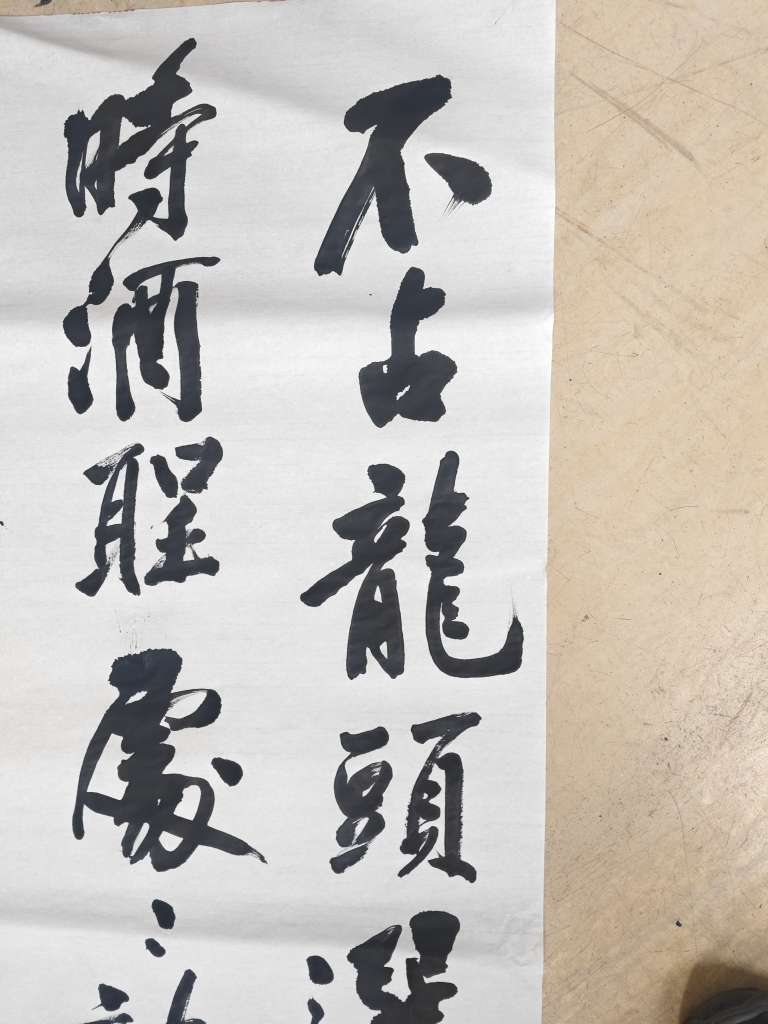 不占龍頭選
時酒聖處々